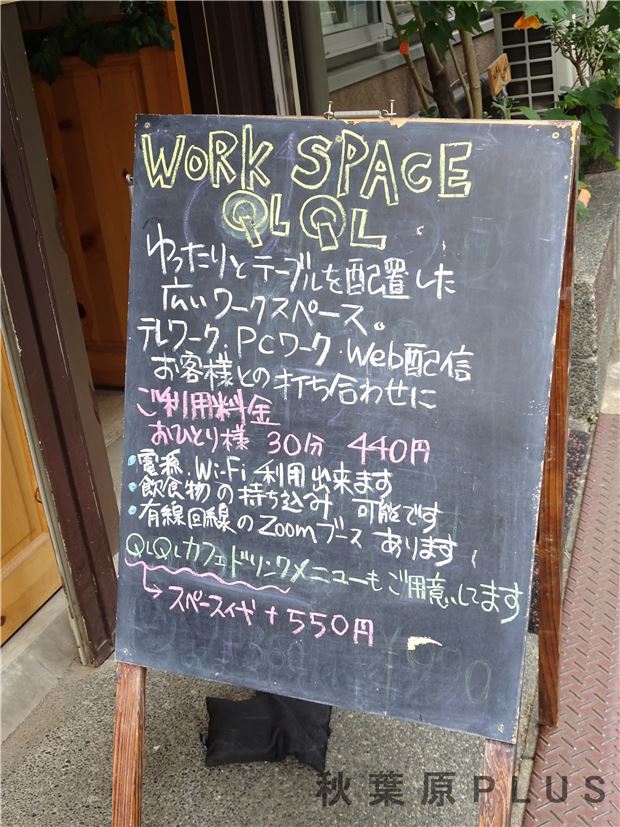 WORK SPACE
QLQL
ゆったりとテーブルを配置した
広いワークスペース。
テレワーク・PCワーク・Web配信
お客様との打ち合わせに
ご利用料金
おひとり様 30分 440円
・電源・Wi-Fi利用出来ます
・飲食物の持ち込み 可能です
・有線回線のZoomブース あります
QLQLカフェドリンクメニューもご用意してます
→スペースイヤ +550円
秋葉原PLUS